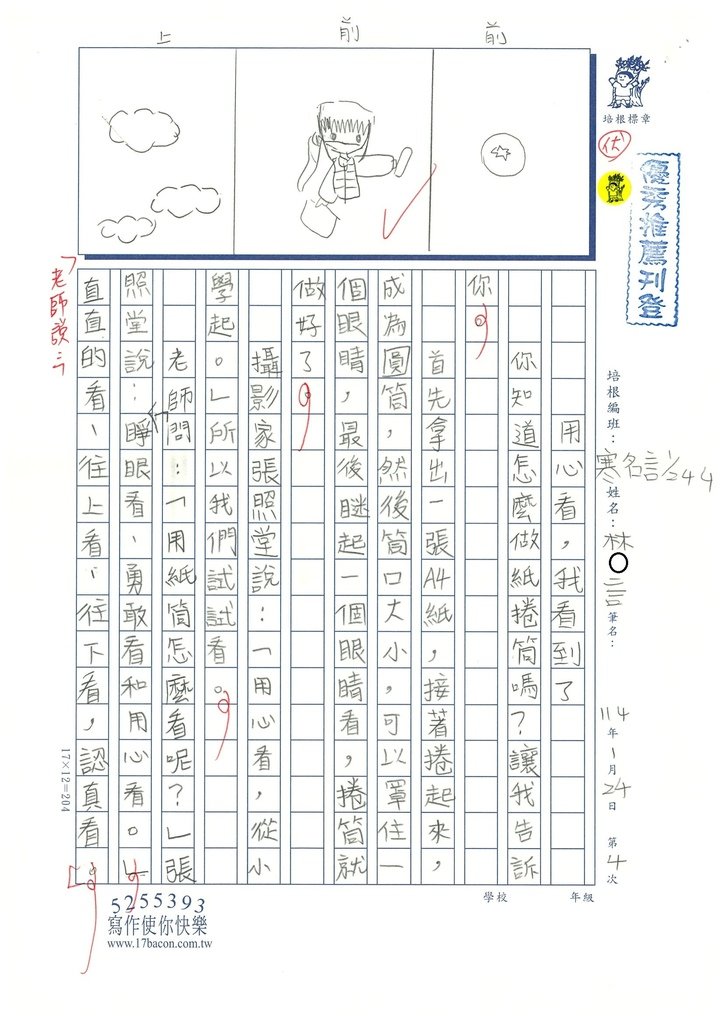 上
前
前
培根標章
優秀推薦刊登
培根編班：寒名言1/244
姓名：林〇言
筆名：
114年1月24日 第4次
用心看，我看到了
你知道怎麼做紙捲筒嗎？讓我告訴
你。
首先拿出一張A4紙，接著捲起來，
成為圓筒，然後筒口大小，可以罩住一
個眼睛，最後瞇起一個眼睛看，捲筒就
做好了。
攝影家張照堂說：「用心看，從小
學起。」所以我們試試看。
老師問：「用紙筒怎麼看呢？」張
照堂說：睜眼看、勇敢看和用心看。」
直直的看、往上看、往下看，認真看。
老師說：
17×12=204
學校
年級
5255393
寫作使你快樂
www.17bacon.com.tw